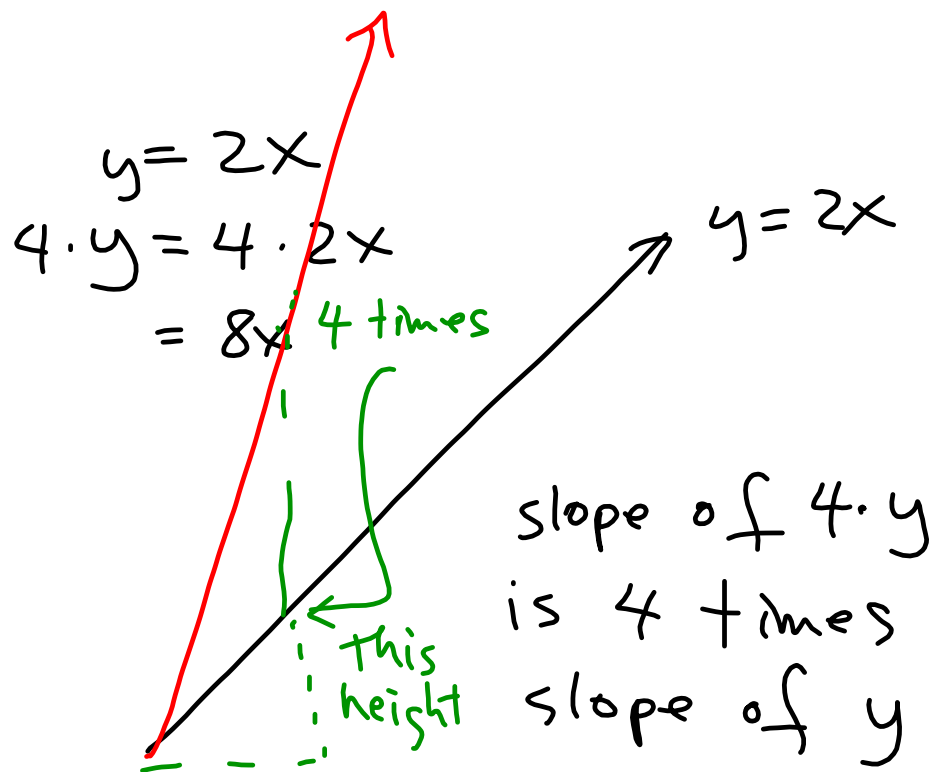 y = 2x
4 · y = 4 · 2x
= 8x
4 times
y = 2x
this
height
slope of 4 · y
is 4 times
slope of y